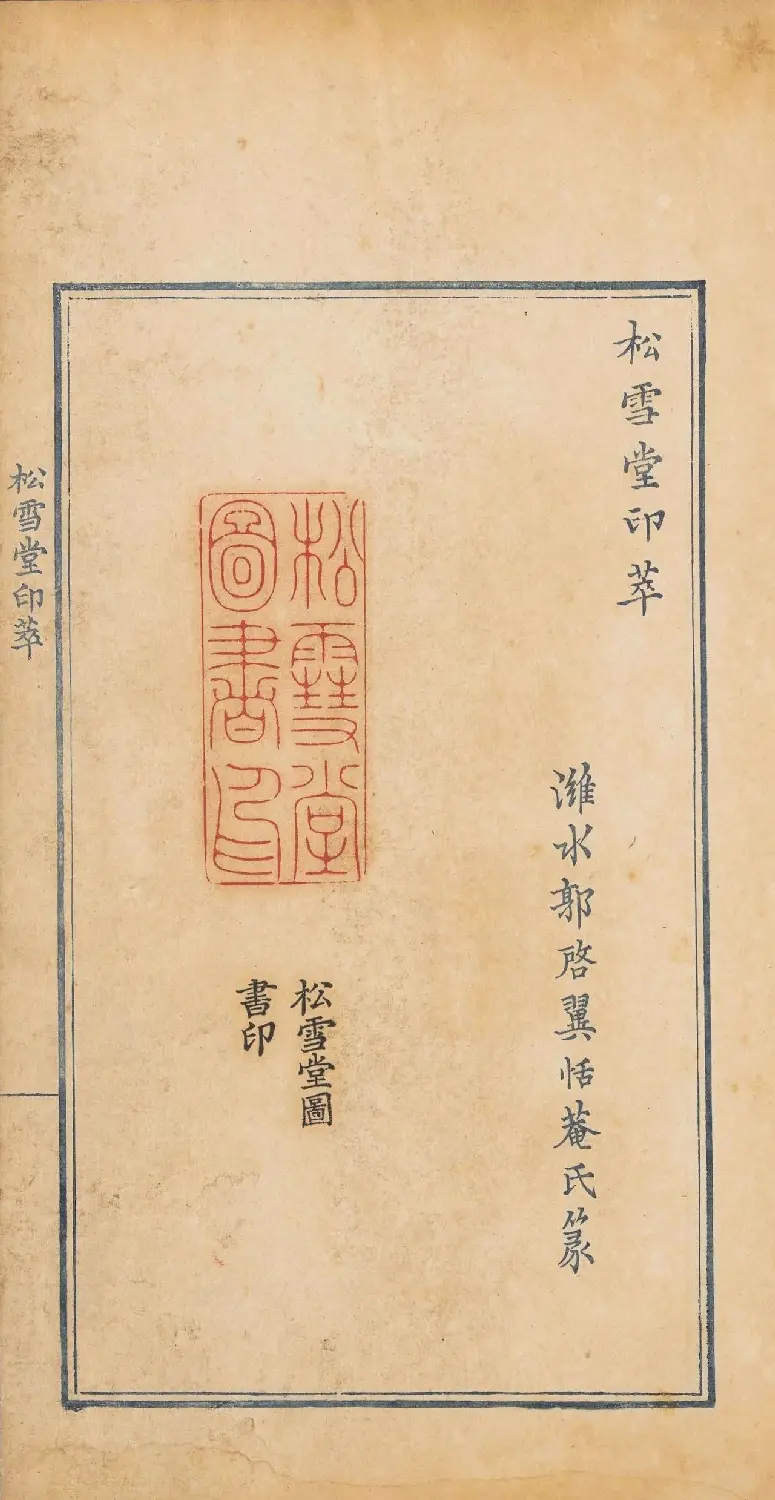 松雪堂印萃
濰水郭啓翼恬菴氏篆
松雪堂
圖書印
松雪堂圖
書印
松雪堂印萃